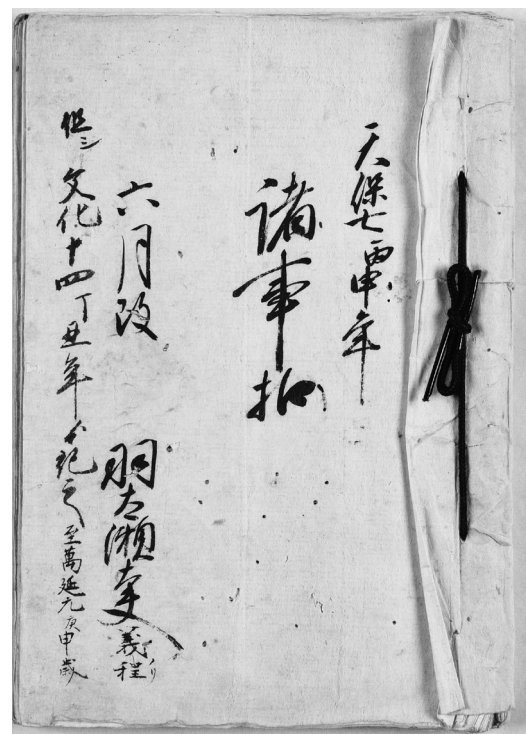 天保七丙申年
諸事扣
六月改
羽太瀬 義程
但シ文化十四丁丑年ゟ記之
至萬延元庚申歳